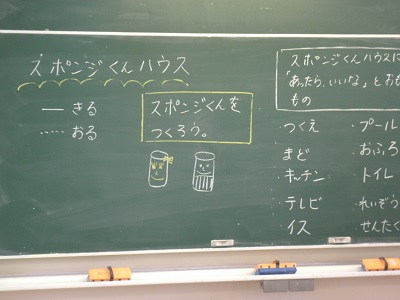 スポンジくんハウス
きる
おる
スポンジくんを
つくろう。
スポンジくんハウスに
「あったら、いいな」とおも
もの
つくえ
まど
キッチン
テレビ
イス
・プール
・おふろ
・トイレ
・れいぞう
・せんたく